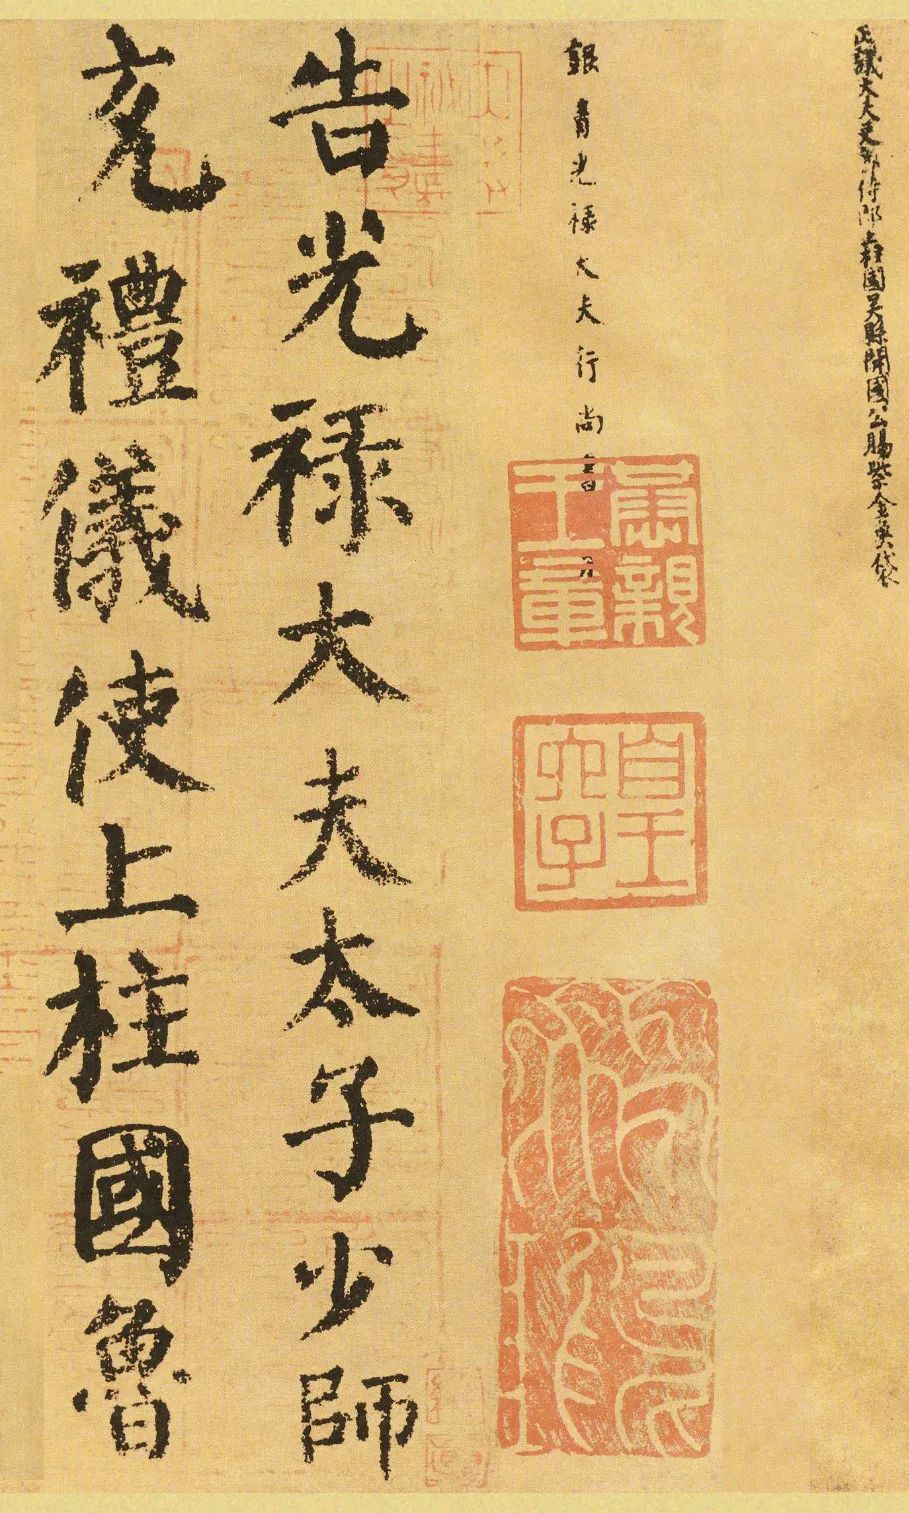 正議大夫吏部侍郎上柱國吳縣開國公賜紫金魚袋
銀青光祿大夫行尚書
肅親
王章
皇
六子
告光祿大夫太子少師
充禮儀使上柱國魯